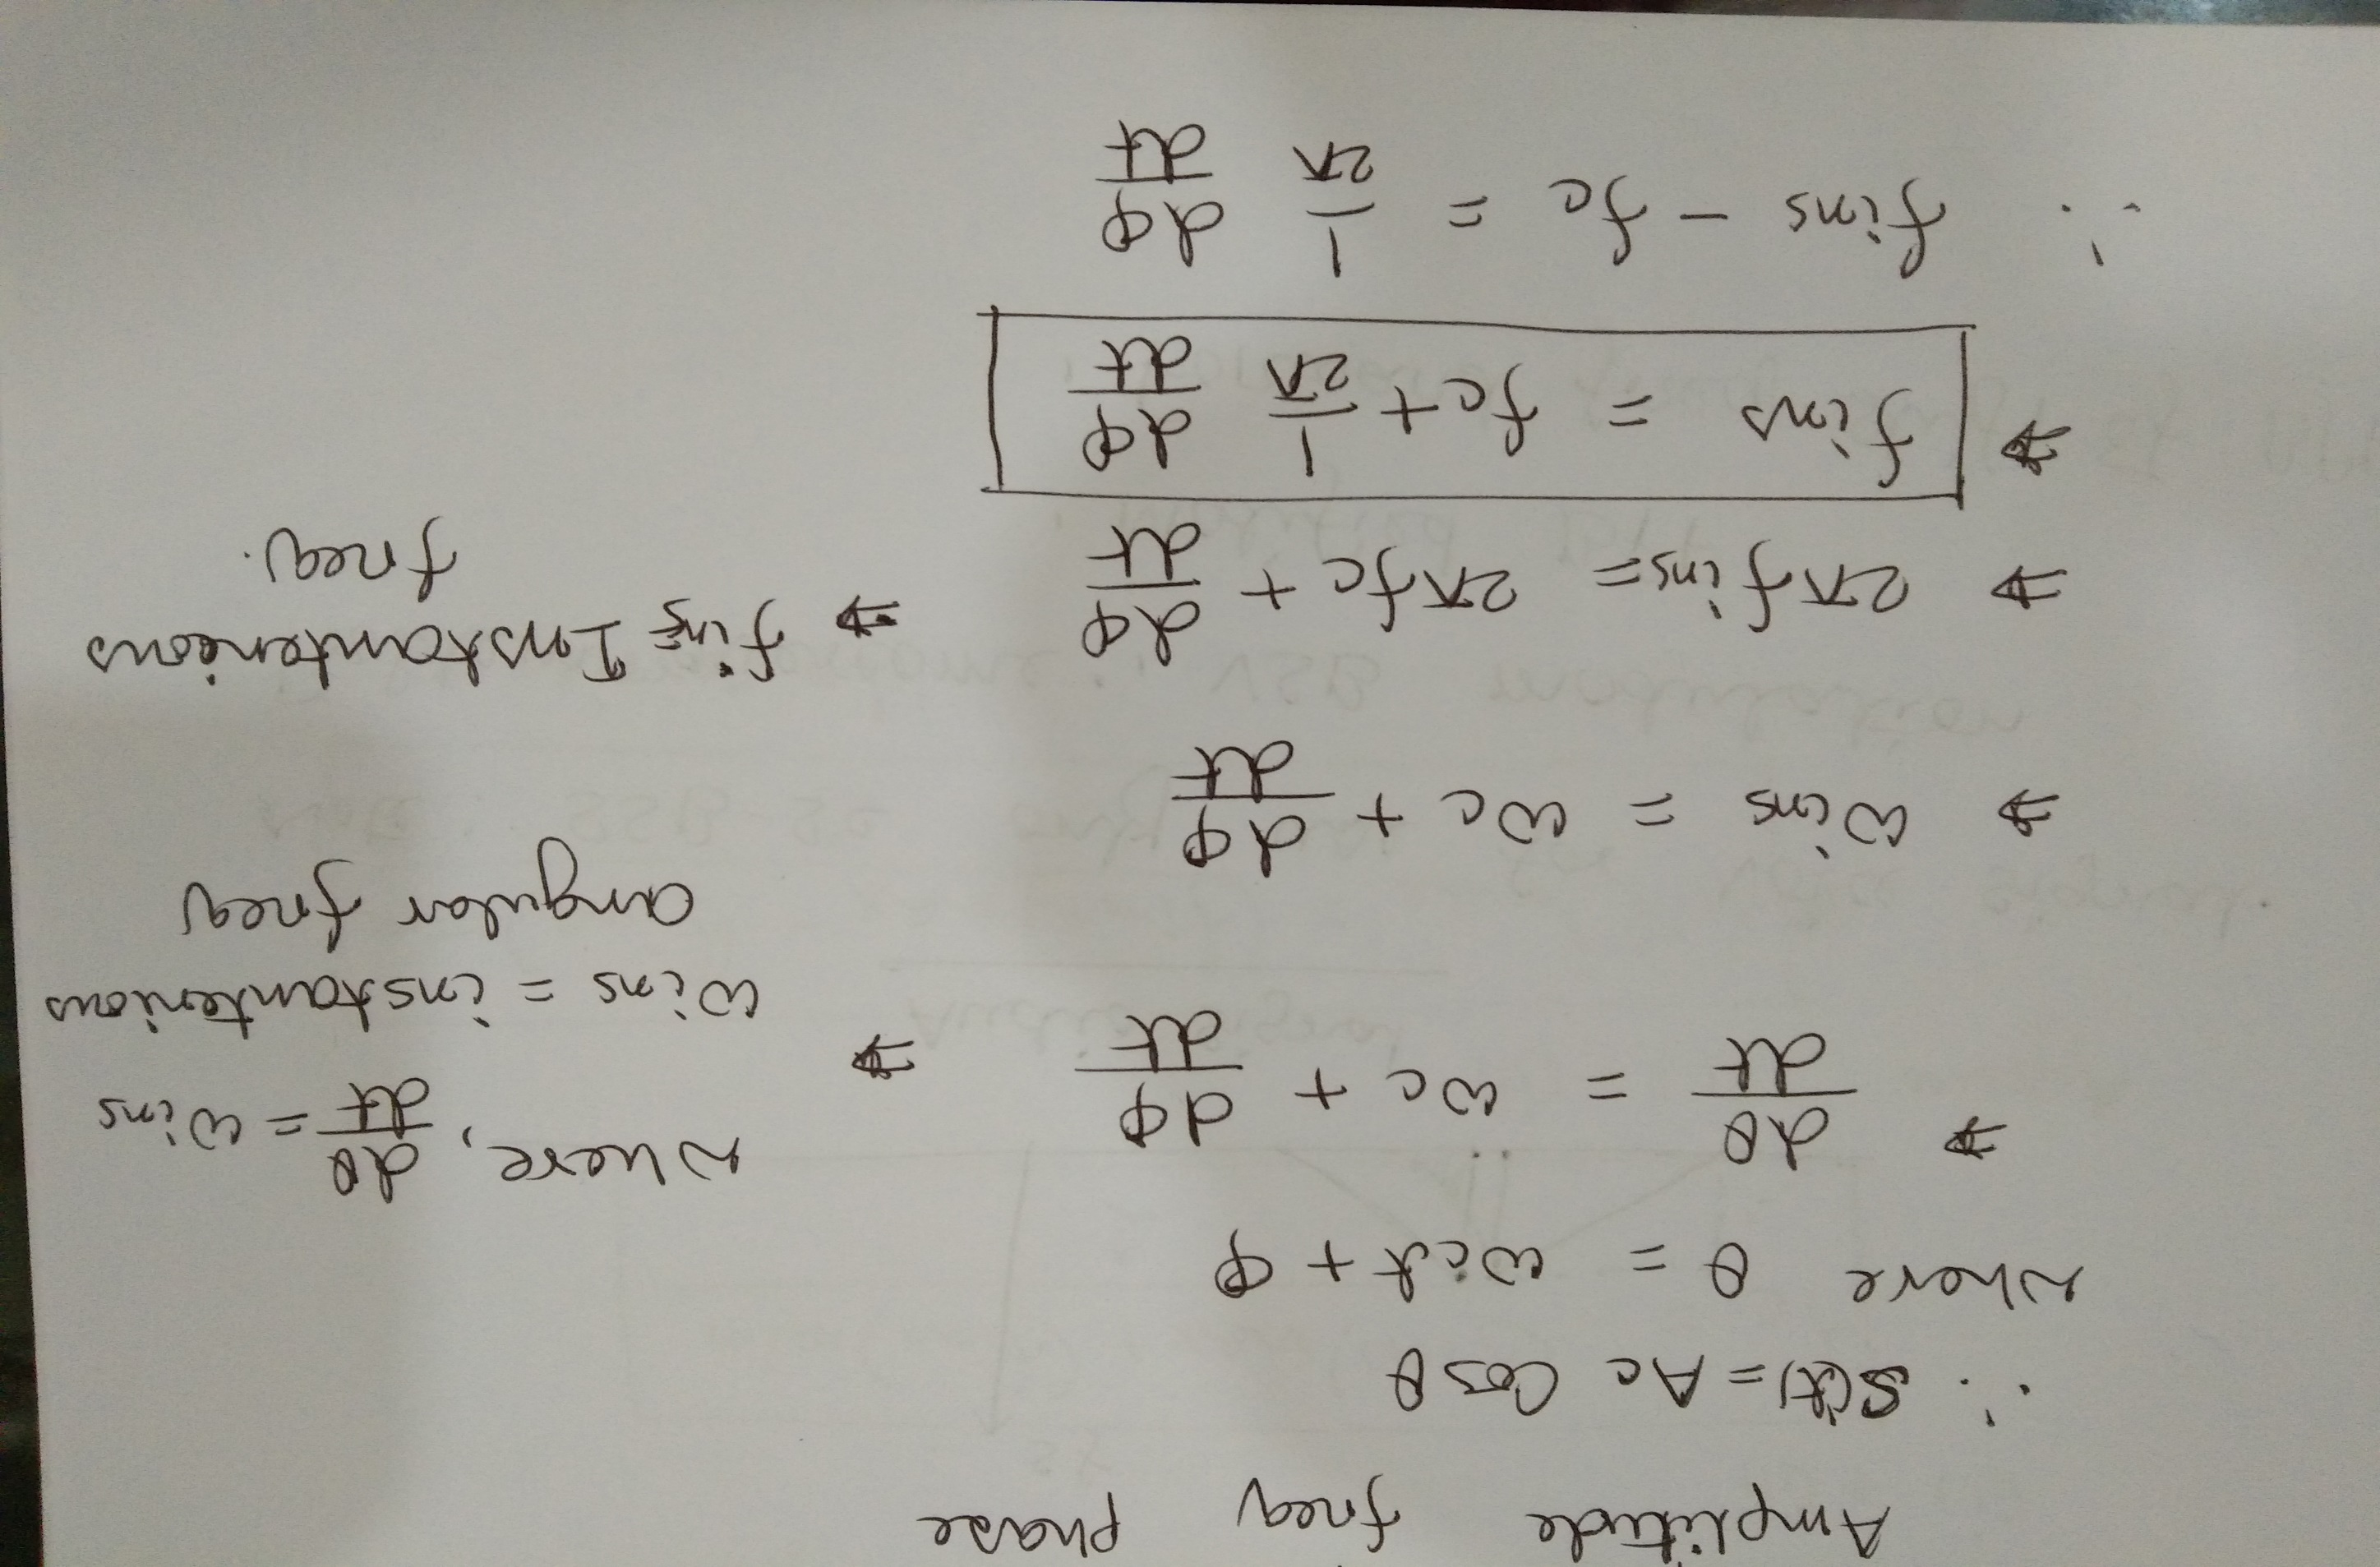 Amplitude freq phase
∴ S(t) = Ac Cos θ
where θ = ωct + φ
⇒ dθ/dt = ωc + dφ/dt
where, dθ/dt = ωins
⇒ ωins = instantenious
angular freq
⇒ ωins = ωc + dφ/dt
⇒ 2π fins = 2π fc + dφ/dt
⇒ fins = Instanteneous
freq.
⇒ fins = fc + 1/2π dφ/dt
∴ fins - fc = 1/2π dφ/dt